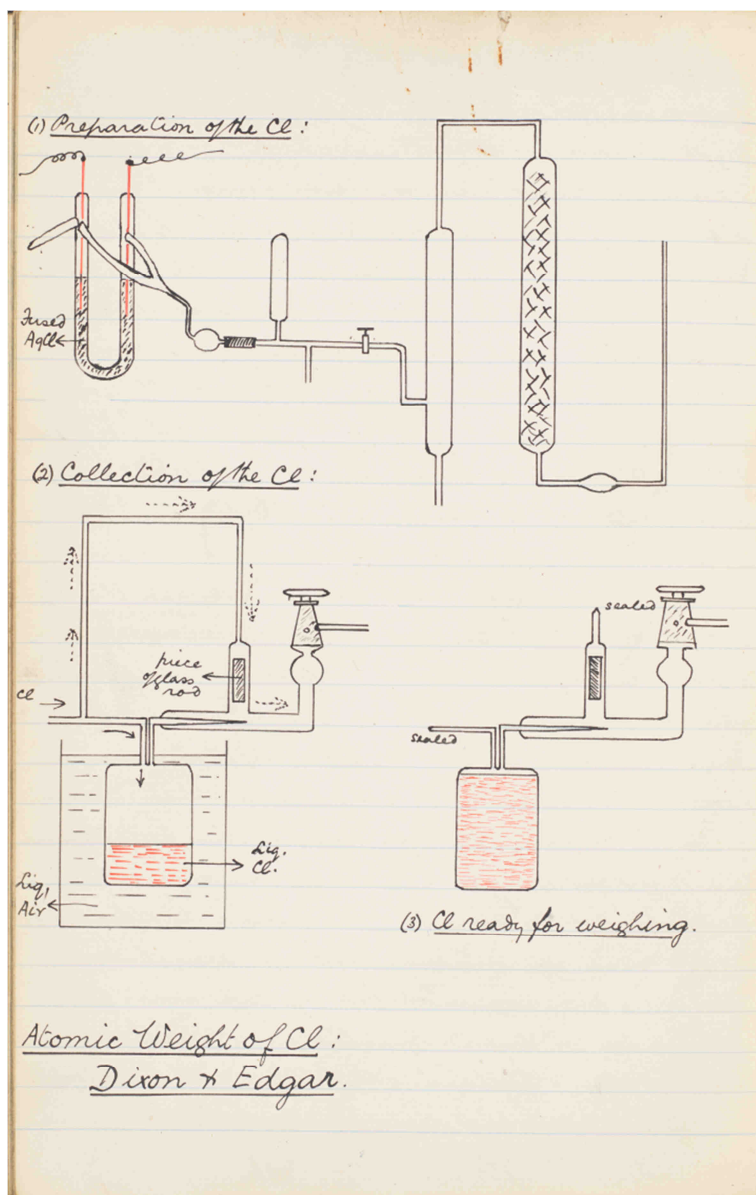 (1) Preparation of the Cl:
Fused
AgCl
(2) Collection of the Cl:
piece
of glass
rod
Cl
Liq.
Cl.
Liq.
Air
sealed
sealed
(3) Cl ready for weighing.
Atomic Weight of Cl:
Dixon & Edgar.